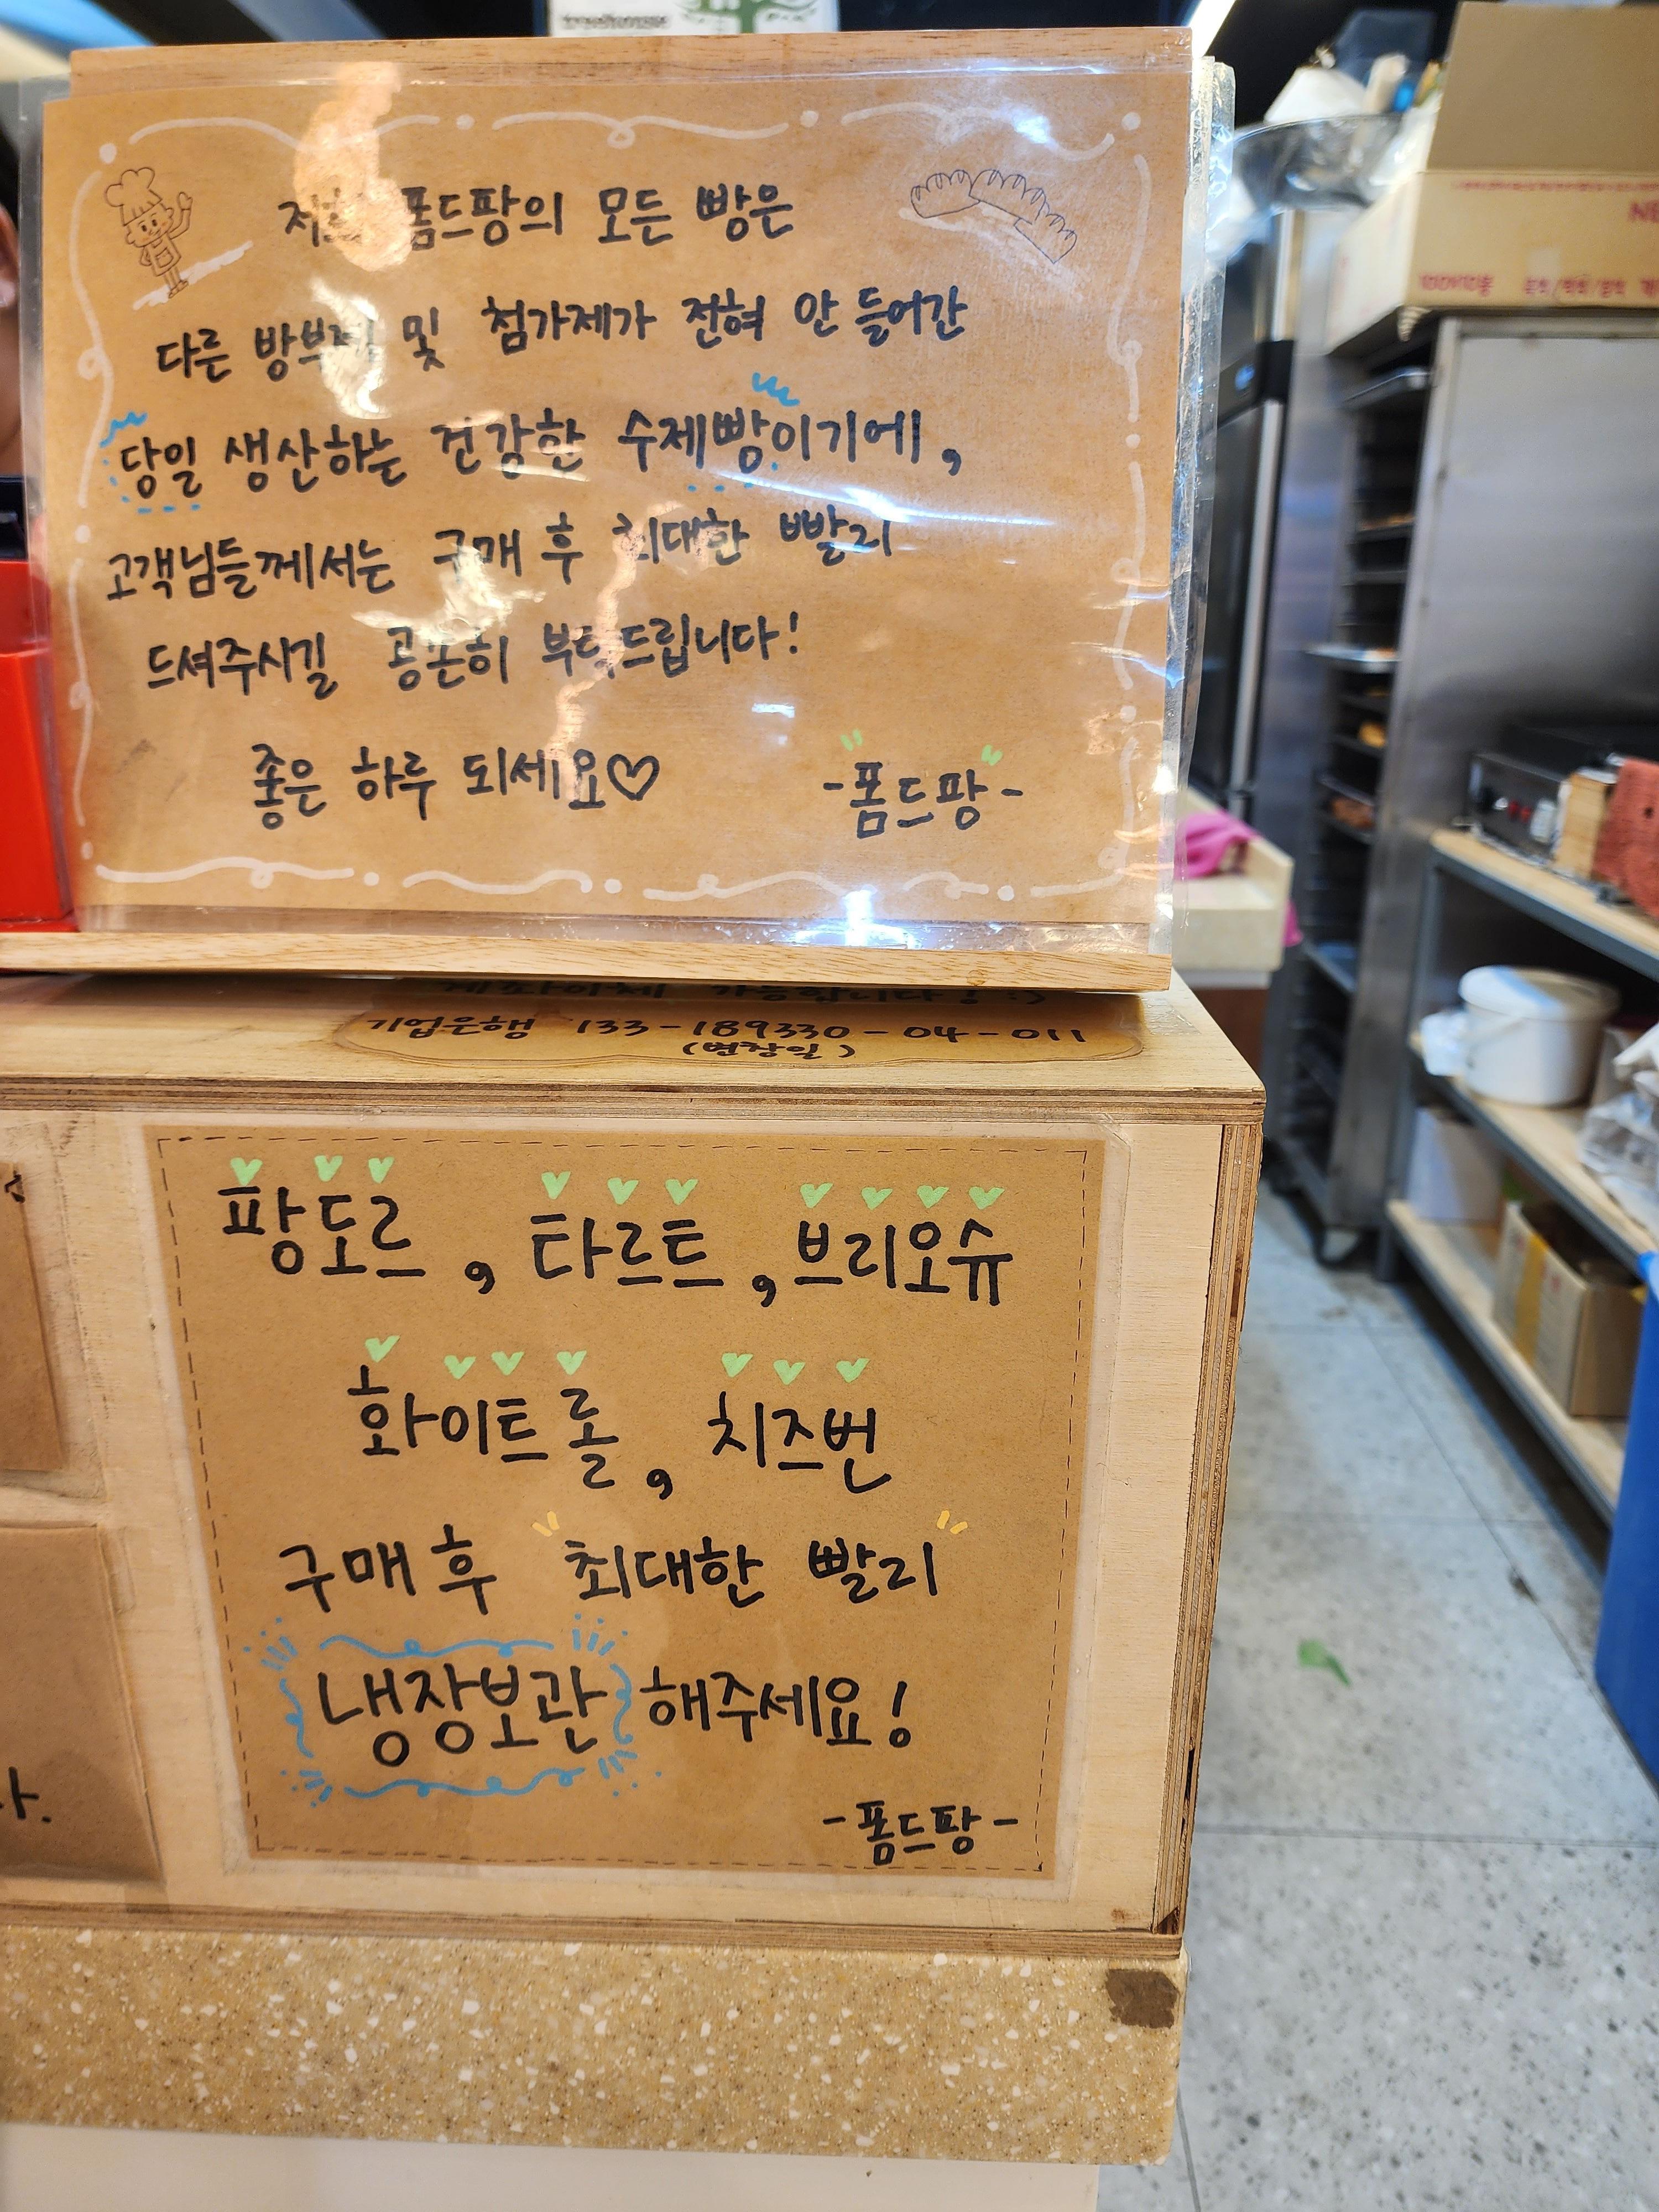 treehouse
저희 폼드팡의 모든 빵은
다른 방부제 및 첨가제가 전혀 안 들어간
당일 생산하는 건강한 수제빵이기에,
고객님들께서는 구매 후 최대한 빨리
드셔주시길 공손히 부탁드립니다!
좋은 하루 되세요♡ -폼드팡-
계좌이체 가능합니다! :)
기업은행 133-189330-04-011
(변창일)
팡도르, 타르트, 브리오슈
화이트롤, 치즈번
구매 후 "최대한 빨리"
냉장보관 해주세요!
-폼드팡-
다.